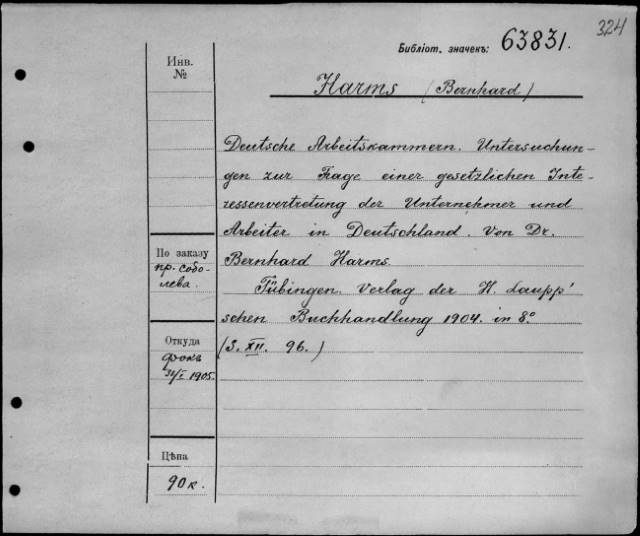 324
Библіот. значекъ: 63831.
Инв.
№
Harms (Bernhard)
Deutsche Arbeitskammern. Untersuchun-
gen zur Frage einer gesetzlichen Inte-
ressenvertretung der Unternehmer und
Arbeiter in Deutschland. Von Dr.
Bernhard Harms.
Tübingen. Verlag der H. Laupp'
schen Buchhandlung 1904. in 8°
(S. XII. 96.)
По заказу
пр. Собо-
лева.
Откуда
Фокъ
31/I 1905.
Цѣна
90 к.